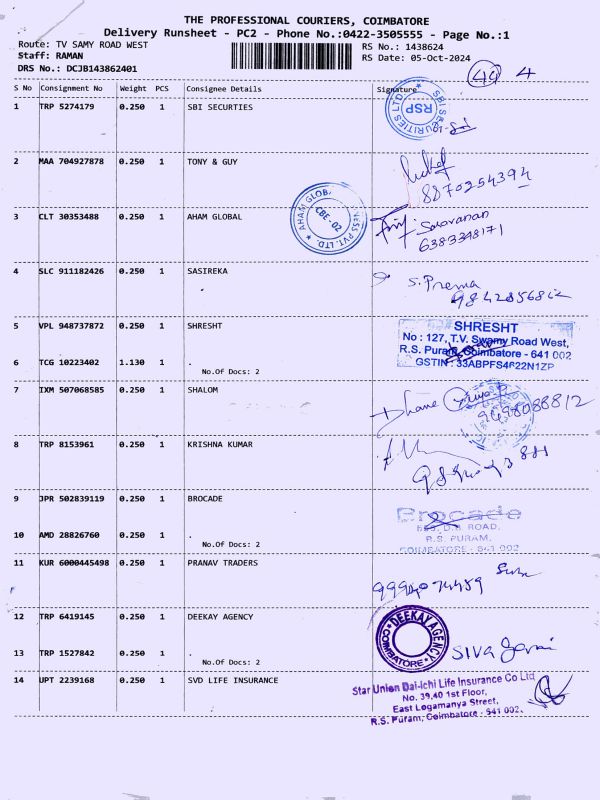 THE PROFESSIONAL COURIERS, COIMBATORE
Delivery Runsheet - PC2 - Phone No.:0422-3505555 - Page No.:1
Route: TV SAMY ROAD WEST
RS No.: 1438624
Staff: RAMAN
RS Date: 05-Oct-2024
DRS No.: DCJB143862401
49 4
S No Consignment No Weight PCS Consignee Details Signature
1 TRP 5274179 0.250 1 SBI SECURTIES
SBI SECURITIES LTD.
RSP
2 MAA 704927878 0.250 1 TONY & GUY
8870254394
3 CLT 30353488 0.250 1 AHAM GLOBAL
AHAM GLOB. NESS PVT. LTD.
CBE-02
Saravanan
6383348171
4 SLC 911182426 0.250 1 SASIREKA
S. Prema
5 VPL 948737872 0.250 1 SHRESHT
SHRESHT
No : 127, T.V. Swamy Road West,
R.S. Puram, Coimbatore - 641 002
GSTIN : 33ABPFS4622N1ZP
6 TCG 10223402 1.130 1 .
No.Of Docs: 2
7 IXM 507068585 0.250 1 SHALOM
9698088812
8 TRP 8153961 0.250 1 KRISHNA KUMAR
9 JPR 502839119 0.250 1 BROCADE
Brocade
ROAD,
R.S. PURAM,
COIMBATORE - 641 002
10 AMD 28826760 0.250 1 .
No.Of Docs: 2
11 KUR 6000445498 0.250 1 PRANAV TRADERS
12 TRP 6419145 0.250 1 DEEKAY AGENCY
DEEKAY AGENCY
COIMBATORE
Siva
13 TRP 1527842 0.250 1 .
No.Of Docs: 2
14 UPT 2239168 0.250 1 SVD LIFE INSURANCE
Star Union Dai-ichi Life Insurance Co Ltd
No. 39,40 1st Floor,
East Logamanya Street,
R.S. Puram, Coimbatore - 641 002.